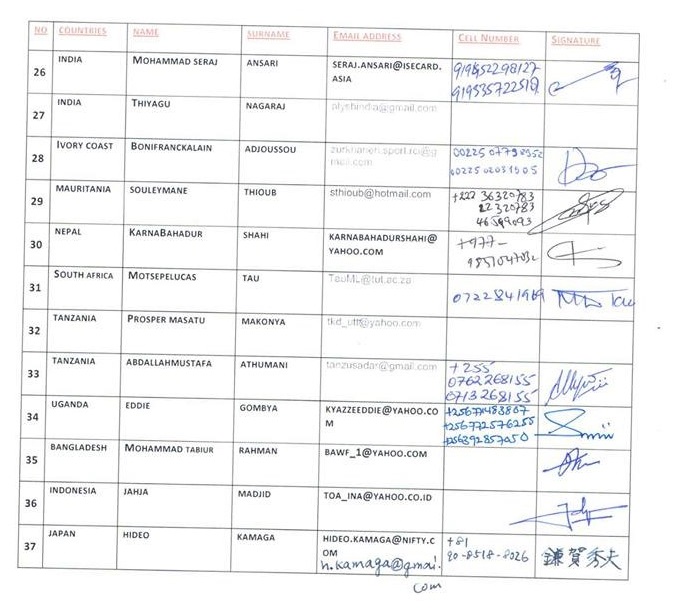 NO COUNTRIES NAME SURNAME EMAIL ADDRESS CELL NUMBER SIGNATURE
26 INDIA MOHAMMAD SERAJ ANSARI SERAJ.ANSARI@ISECARD.
ASIA
919535722519
27 INDIA THIYAGU NAGARAJ alyshindia@gmail.com
28 IVORY COAST BONIFRANCKALAIN ADJOUSSOU zurkhaneh.sport.rci@g
mail.com
29 MAURITANIA SOULEYMANE THIOUB sthioub@hotmail.com +222 36320783
22320783
30 NEPAL KARNABAHADUR SHAHI KARNABAHADURSHAHI@
YAHOO.COM
+977-
31 SOUTH AFRICA MOTSEPELUCAS TAU TauML@tut.ac.za
32 TANZANIA PROSPER MASATU MAKONYA tkd_utf@yahoo.com
33 TANZANIA ABDALLAHMUSTAFA ATHUMANI tanzusadar@gmail.com +255
0762268155
0713268155
34 UGANDA EDDIE GOMBYA KYAZZEEDDIE@YAHOO.CO
M
+256772576255
+256392857050
35 BANGLADESH MOHAMMED TABIUR RAHMAN BAWF_1@YAHOO.COM
36 INDONESIA JAHJA MADJID TOA_INA@YAHOO.CO.ID
37 JAPAN HIDEO KAMAGA HIDEO.KAMAGA@NIFTY.C
OM
+81
90-8518-8026 鎌賀秀夫
h.kamaga@gmai.
com